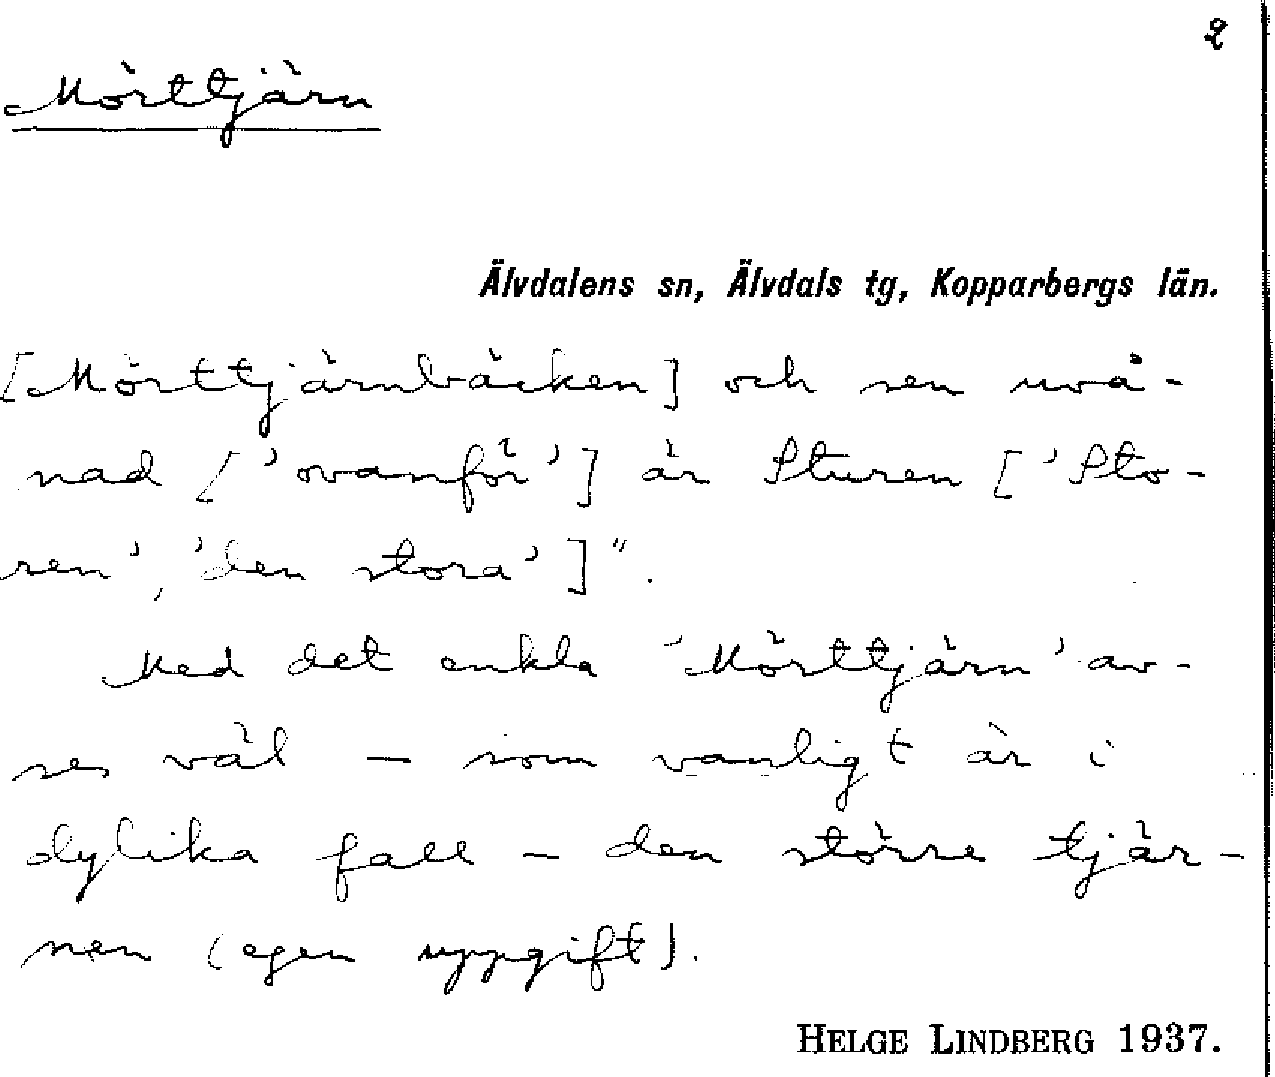 2
Mörttjärn
Älvdalens sn, Älvdals tg, Kopparbergs län.
[Mörttjärnbäcken] och sen uvå-
nad ['ovanför'] är Sturen ['Sto-
ren', 'den stora']".
Med det enkla 'Mörttjärn' av-
ses väl – som vanligt är i
dylika fall – den större tjär-
nen (egen uppgift).
HELGE LINDBERG 1937.